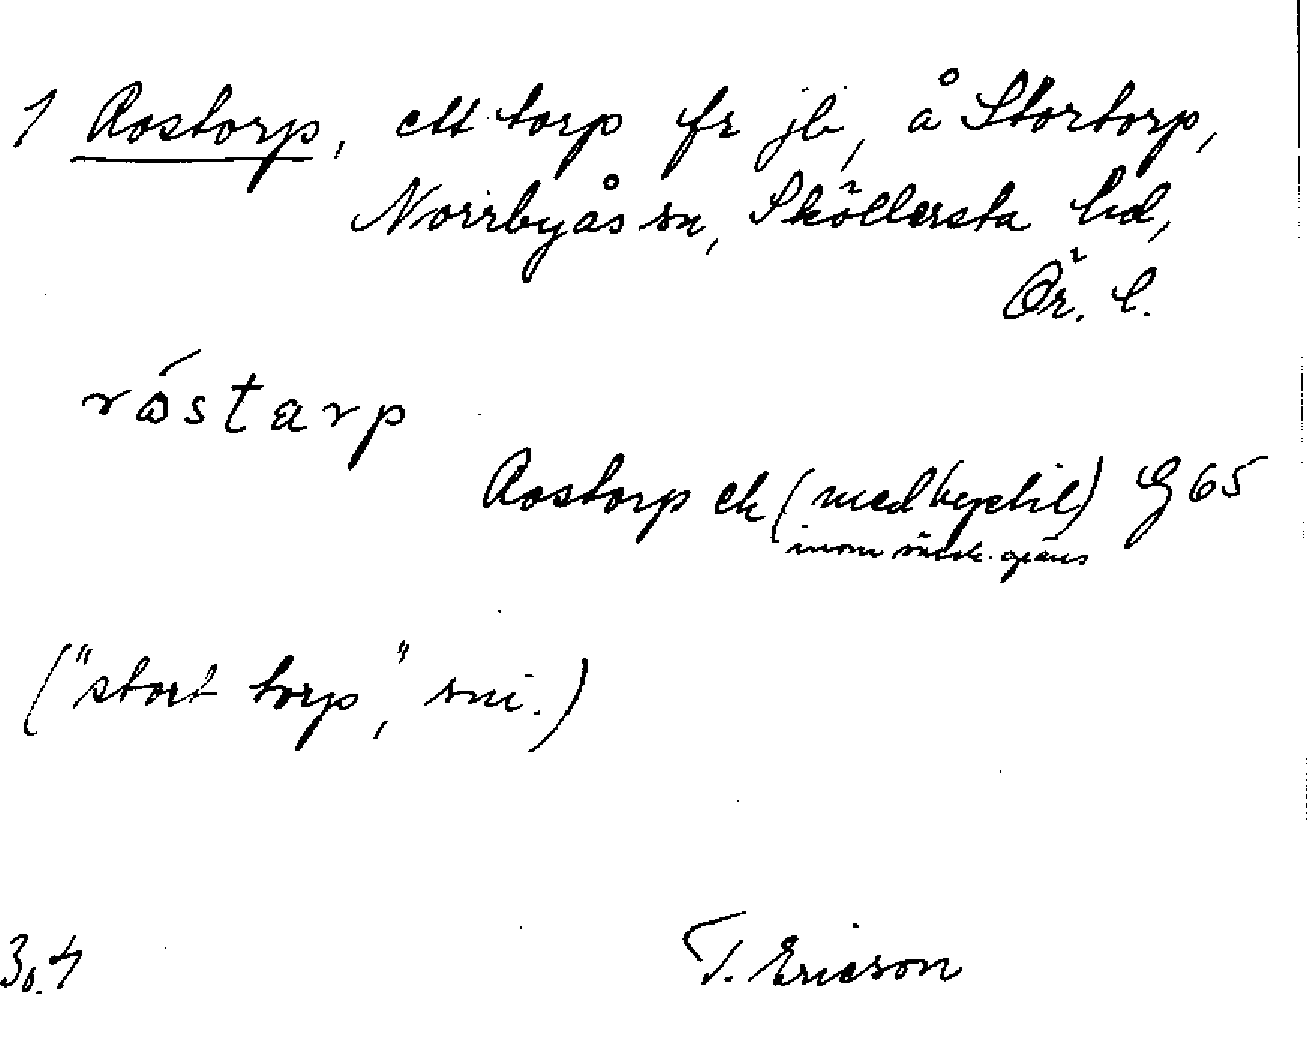 1 Rostorp, ett torp fr jb, å Stortorp,
Norrbyås sn, Sköllersta hd,
Ör. l.
råstarp
Rostorp ek (med byetil) G 65
inom
("stort torp", sni.)
T. Ericson